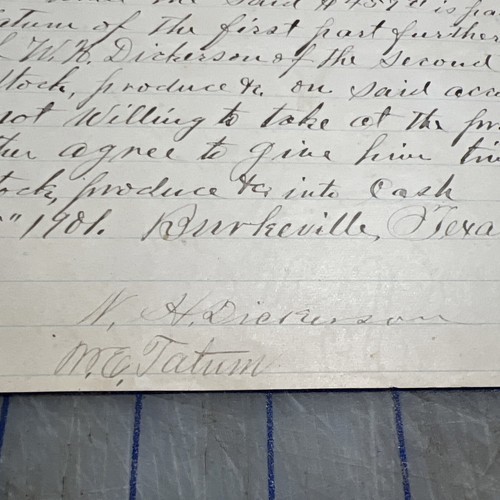 the said $457 is pa
atum of the first part further
W. H. Dickerson of the second
stock, produce &c. on said acco
not Willing to take at the pr
ther agree to give him tim
tock, produce &c into Cash
" 1901. Burkeville, Texa
W. H. Dickerson
W. E. Tatum